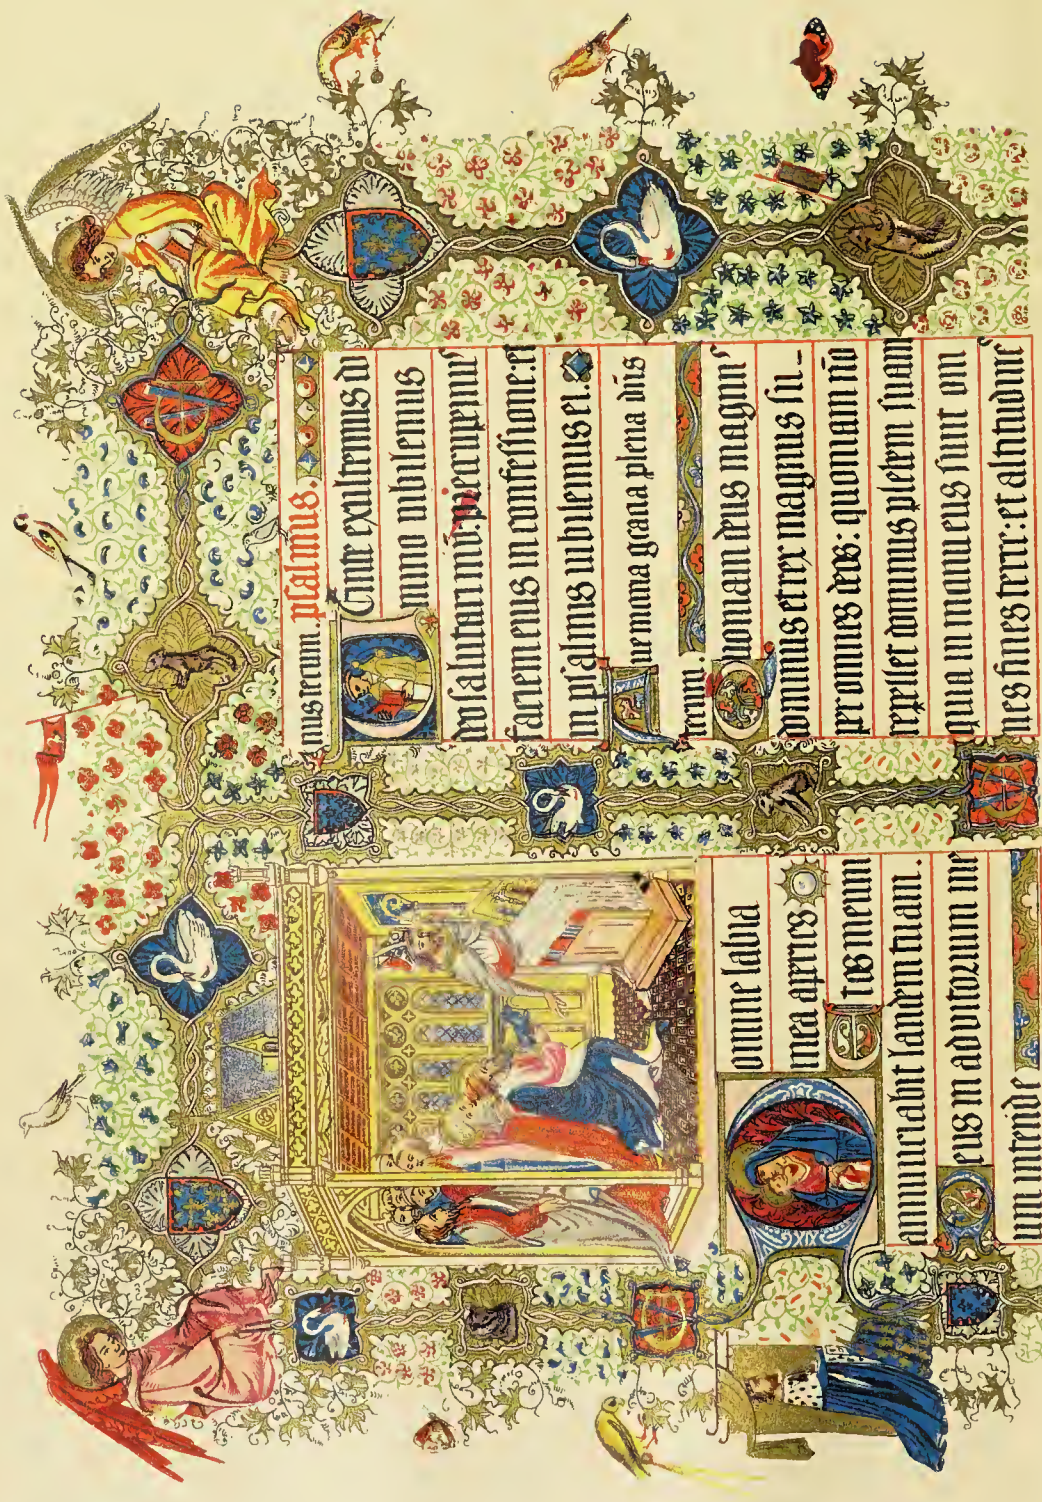 Domine labia
mea apries
Et os meum
annunciabit laudem tuam.
Deus in adiutorium me
um intende
nus tecum. psalmus.
Venite exultemus do
mino iubilemus
deo salutari
faciem eius in confessione: et
in psalmis iubilemus ei.
Aue maria gracia plena dñs
tecum.
Quoniam deus magnus
dominus et rex magnus su-
per omnes deos: quoniam nõ
repellet dominus plebem suam
quia in manu eius sunt om
nes fines terre: et altitudines